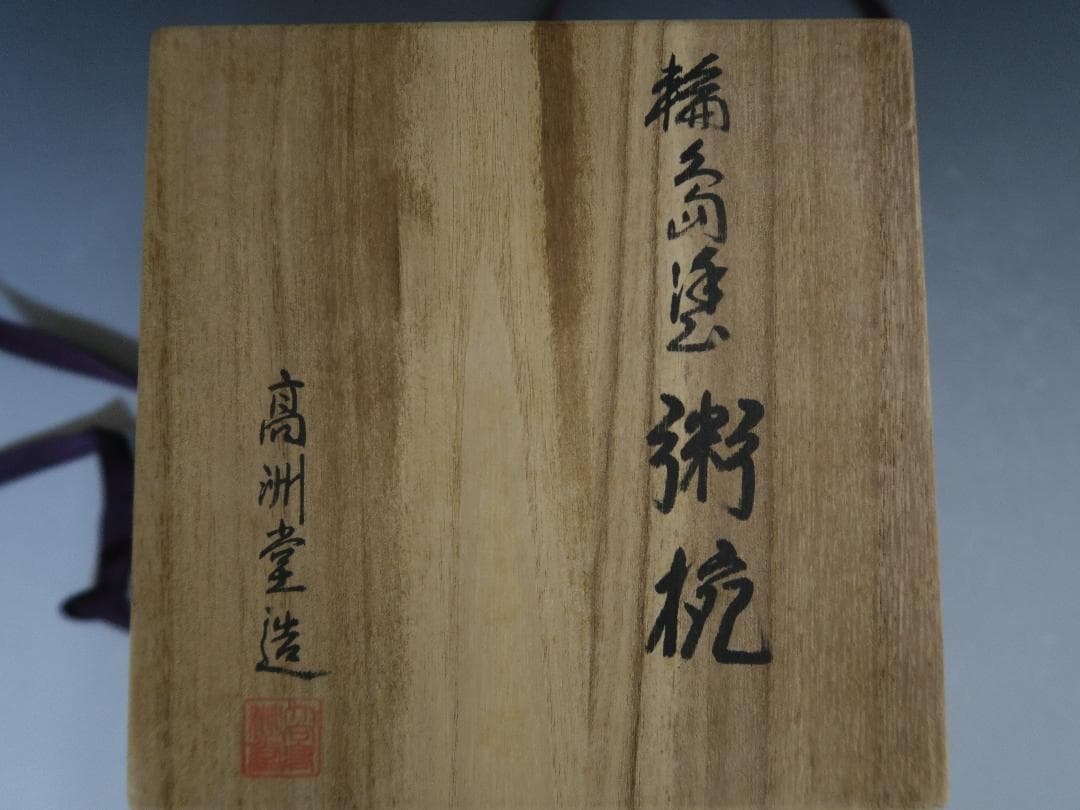 輪島塗 粥椀
高洲堂造